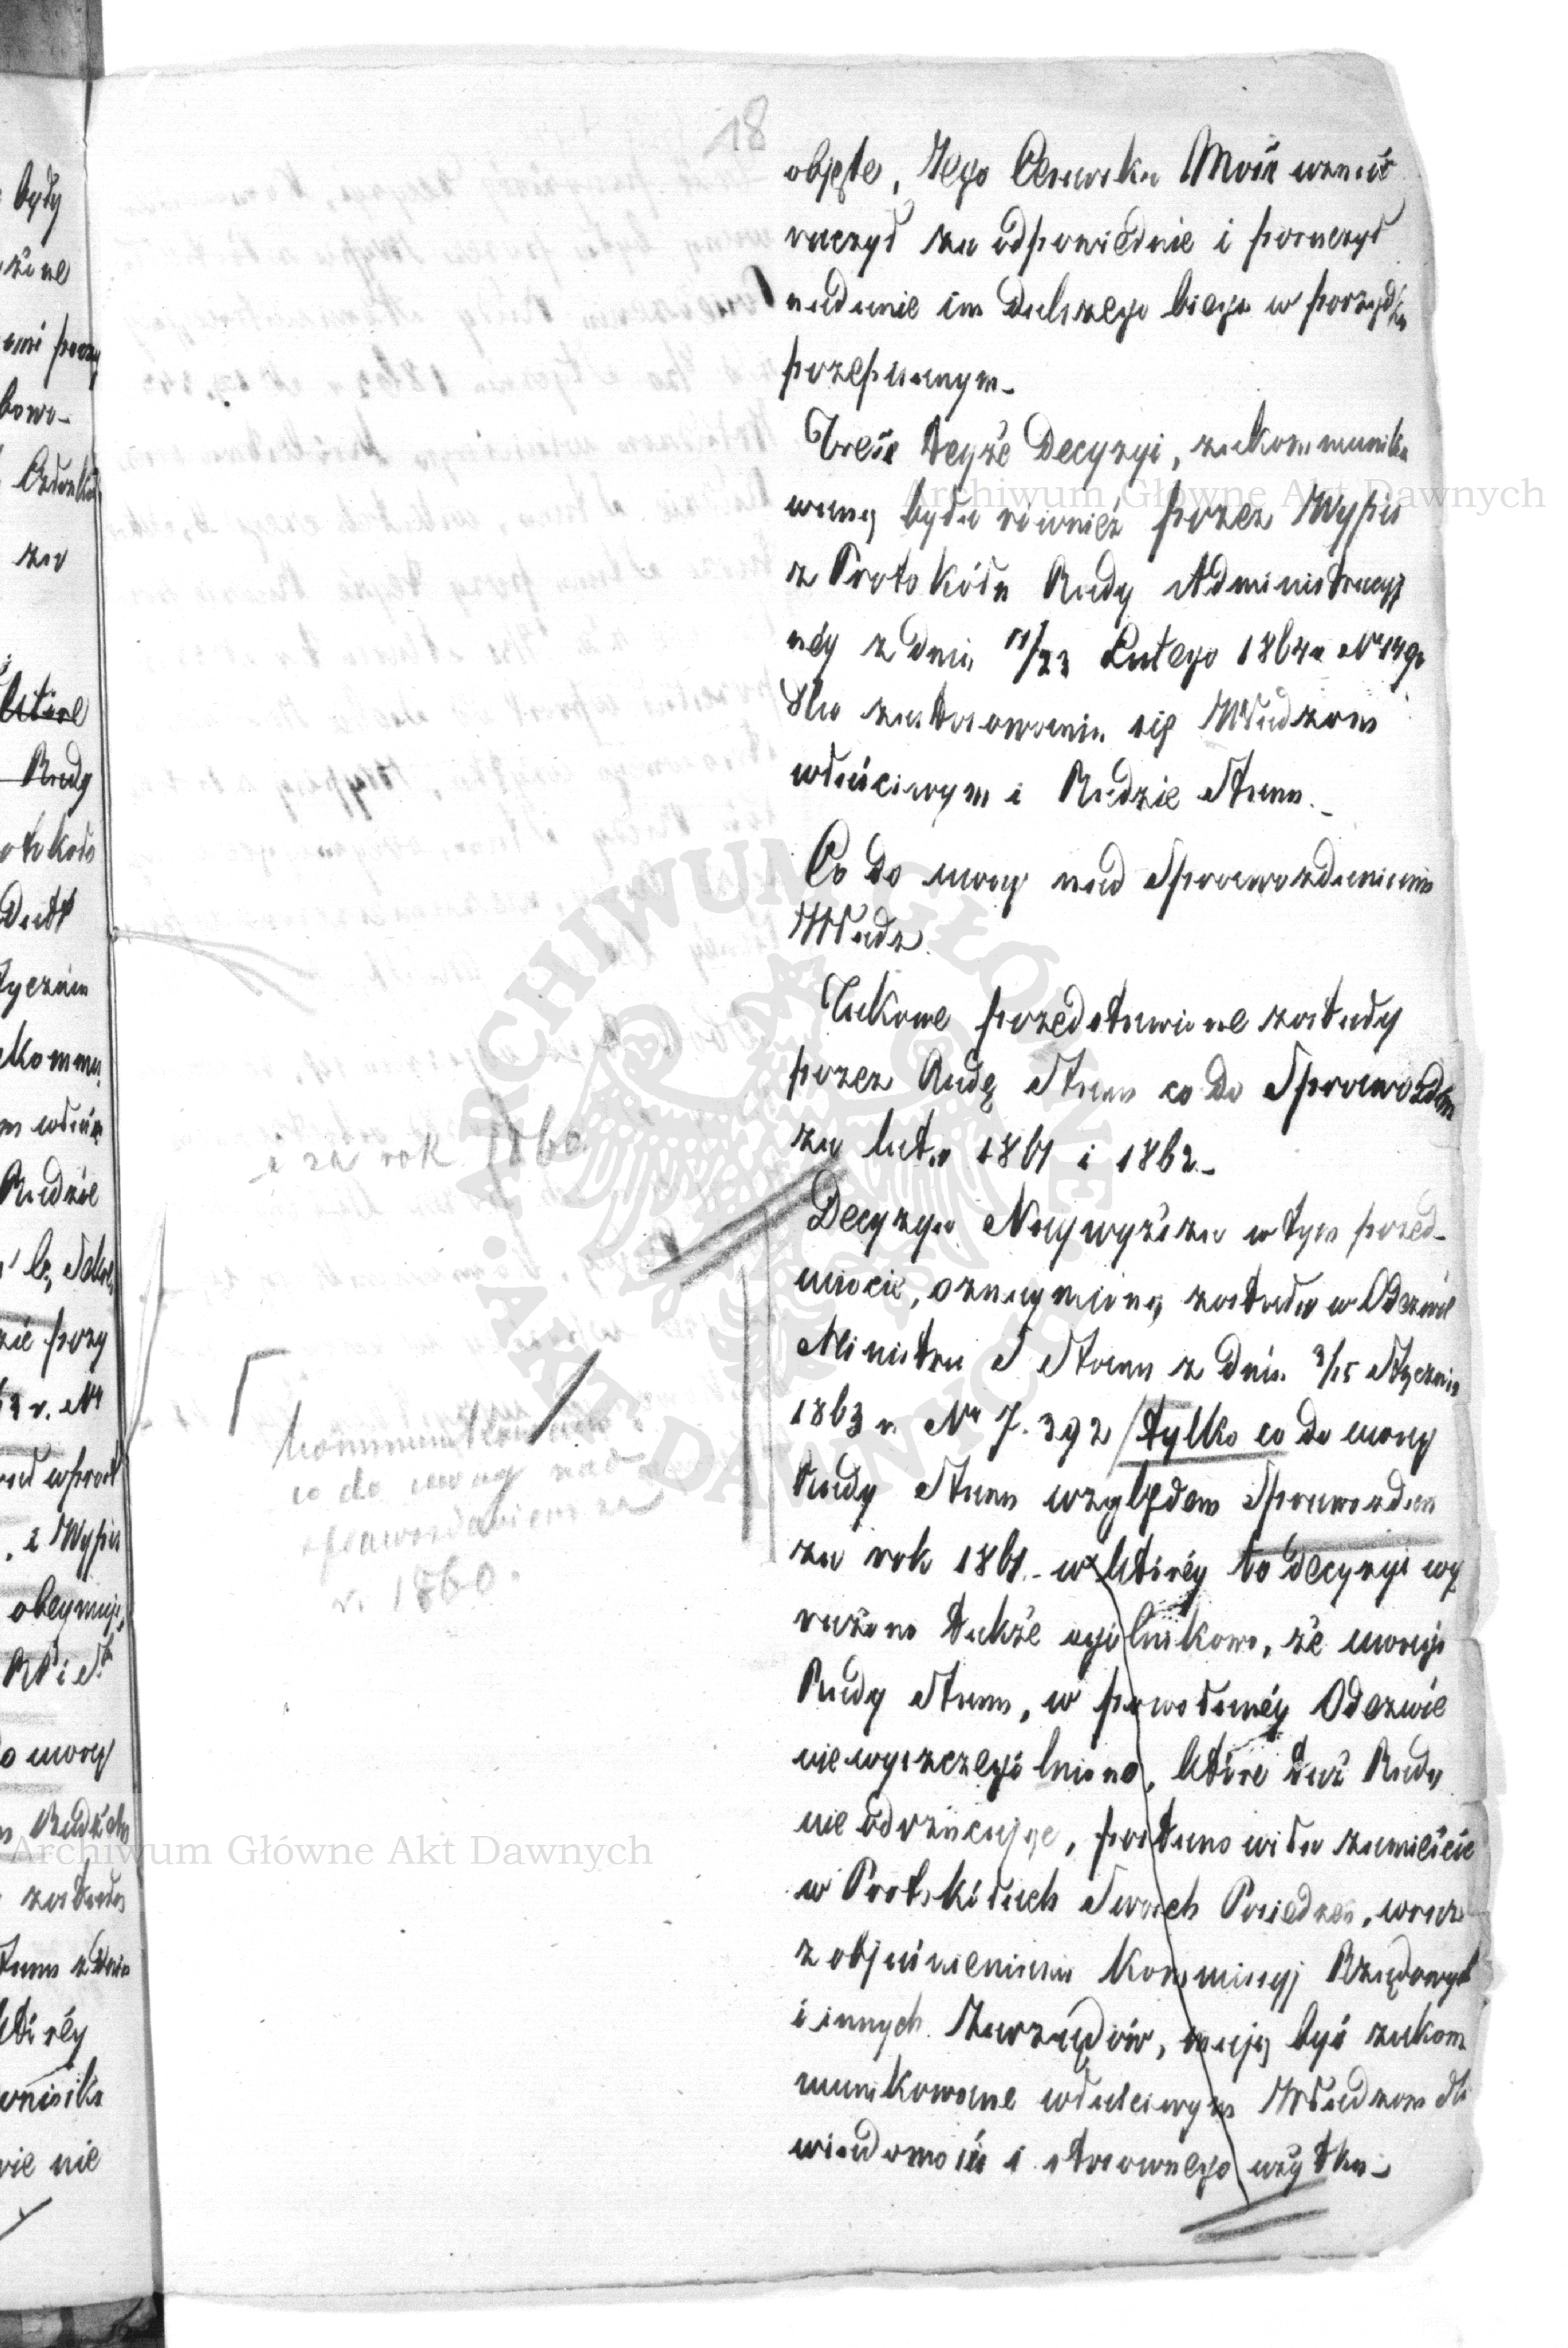 18
objęte, Jego Cesarska Mość uznać
raczył za odpowiednie i poruczył
nadanie im dalszego biegu w porządku
przepisanym.
Treść tejże Decyzyi, zakommuniko
waną była również przez Wypis
z Protokółu Rady Administracyj
néy z dnia 11/23 Lutego 1864 r. Nr
dla zastosowania się Władzom
właściwym i Radzie Stanu.
Co do uwag nad Sprawozdaniami
Władz.
Takowe przedstawione zostały
przez Radę Stanu co do Sprawozdań
za lata 1861 i 1862.
i za rok 1860
Decyzya Naywyższa w tym przed-
miocie, oznaymioną została w Odezwie
Ministra S. Stanu z dnia 3/15 Stycznia
1863 r. Nr 7.392 /tylko co do uwag
Rady Stanu względem Sprawozdań
za rok 1861. w któréy to decyzyi wy
rażono także ogólnikowo, że uwagi
Rady Stanu, w powołanéy Odezwie
nie wyszczególniono, które taż Rada
nie odrzucając, postanowiła zamieścić
w Protokółach Swoich Posiedzeń, wraz
z objaśnieniami Kommissyj Rządowych
i innych Zarządów, mają być zakom
munikowane właściwym Władzom dla
wiadomości i stosownego użytku.
kommunikowano
co do uwag nad
sprawozdaniem za
r. 1860.
były
Rady
Radzie
i Wypis
nie
Archiwum Główne Akt Dawnych
Archiwum Główne Akt Dawnych
ARCHIWUM GŁÓWNE AKT DAWNYCH